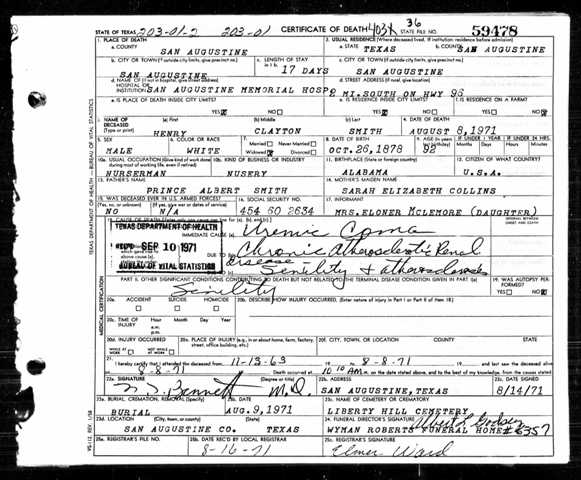 STATE OF TEXAS 203-01-2 203-01 CERTIFICATE OF DEATH 36 STATE FILE NO. 59478
1. PLACE OF DEATH 2. USUAL RESIDENCE (Where deceased lived. If institution: residence before admission)
a. COUNTY SAN AUGUSTINE a. STATE TEXAS b. COUNTY SAN AUGUSTINE
b. CITY OR TOWN (If outside city limits, give precinct no.) c. LENGTH OF STAY in 1 b. c. CITY OR TOWN (If outside city limits, give precinct no.)
SAN AUGUSTINE 17 DAYS SAN AUGUSTINE
d. NAME OF (If not in hospital, give street address) HOSPITAL OR INSTITUTION SAN AUGUSTINE MEMORIAL HOSP d. STREET ADDRESS (If rural, give location) 2 MI. SOUTH ON HWY 96
e. IS PLACE OF DEATH INSIDE CITY LIMITS? YES NO e. IS RESIDENCE INSIDE CITY LIMITS? YES NO f. IS RESIDENCE ON A FARM? YES NO
3. NAME OF DECEASED (Type or print) (a) First HENRY (b) Middle CLAYTON (c) Last SMITH 4. DATE OF DEATH AUGUST 8, 1971
5. SEX MALE 6. COLOR OR RACE WHITE 7. Married Never Married Widowed Divorced 8. DATE OF BIRTH OCT. 26, 1878 92 IF UNDER 1 YEAR IF UNDER 24 HRS.
10a. USUAL OCCUPATION (Give kind of work done during most of working life, even if retired) 10b. KIND OF BUSINESS OR INDUSTRY 11. BIRTHPLACE (State or foreign country) 12. CITIZEN OF WHAT COUNTRY?
NURSERMAN NUSERY ALABAMA U.S.A.
13. FATHER'S NAME 14. MOTHER'S MAIDEN NAME
PRINCE ALBERT SMITH SARAH ELIZABETH COLLINS
15. WAS DECEASED EVER IN U.S. ARMED FORCES? 16. SOCIAL SECURITY NO. 17. INFORMANT
(Yes, no, or unknown) NO N/A 454 60 2634 MRS. ELONER MCLEMORE (DAUGHTER)
IMMEDIATE CAUSE (a) Uremic Coma
TEXAS DEPARTMENT OF HEALTH
SEP 10 1971
BUREAU OF VITAL STATISTICS
Chronic Atherosclerotic Renal
disease
Senility & atherosclerosis
PART II. OTHER SIGNIFICANT CONDITIONS CONTRIBUTING TO DEATH BUT NOT RELATED TO THE TERMINAL DISEASE CONDITION GIVEN IN PART I(a) 19. WAS AUTOPSY PERFORMED?
Senility YES NO
20a. ACCIDENT SUICIDE HOMICIDE 20b. DESCRIBE HOW INJURY OCCURRED. (Enter nature of injury in Part I or Part II of item 18.)
20c. TIME OF INJURY Hour Month Day Year a.m. p.m.
20d. INJURY OCCURRED WHILE AT WORK NOT WHILE AT WORK 20e. PLACE OF INJURY (e.g., in or about home, farm, factory, street, office building, etc.) 20f. CITY, TOWN, OR LOCATION COUNTY STATE
21. I hereby certify that I attended the deceased from 11-13-63 19 to 8-8-71 19 and last saw the deceased alive
on 8-8-71 19 Death occurred at 10:10 AM. on the date stated above, and to the best of my knowledge, from the causes stated.
22a. SIGNATURE Bennett (Degree or title) M.D. 22b. ADDRESS SAN AUGUSTINE, TEXAS 22c. DATE SIGNED 8/14/71
23a. BURIAL, CREMATION, REMOVAL (Specify) BURIAL 23b. DATE AUG. 9, 1971 23c. NAME OF CEMETERY OR CREMATORY LIBERTY HILL CEMETERY
23d. LOCATION (City, town, or county) (State) SAN AUGUSTINE CO. TEXAS 24. FUNERAL DIRECTOR'S SIGNATURE WYMAN ROBERTS FUNERAL HOME #6357
25a. REGISTRAR'S FILE NO. 25b. DATE REC'D BY LOCAL REGISTRAR 8-16-71 25c. REGISTRAR'S SIGNATURE Elmer Ward
TEXAS DEPARTMENT OF HEALTH — BUREAU OF VITAL STATISTICS
MEDICAL CERTIFICATION